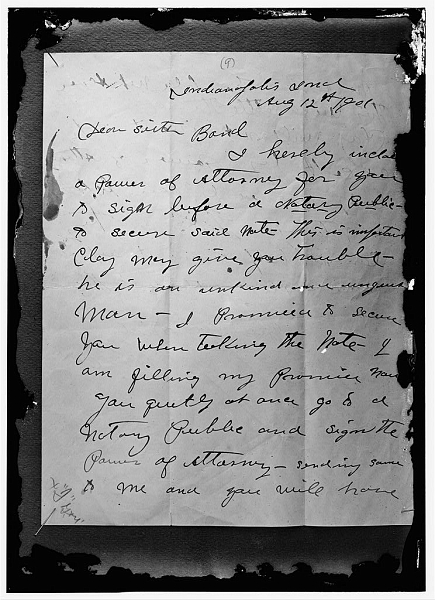 (9)
Indianapolis Ind
Aug 12th 1901
Dear sister Band
I hereby inclose
a Power of Attorney for you
to sign before a Notary Public -
to secure said Note - This is important
Clay may give you trouble -
he is an unkind and
Man - I Promised to secure
you when taking the Note - I
am filling my Promise now
you quetly at once go to a
Notary Public and sign the
Power of Attorney - sending same
to me and you will have